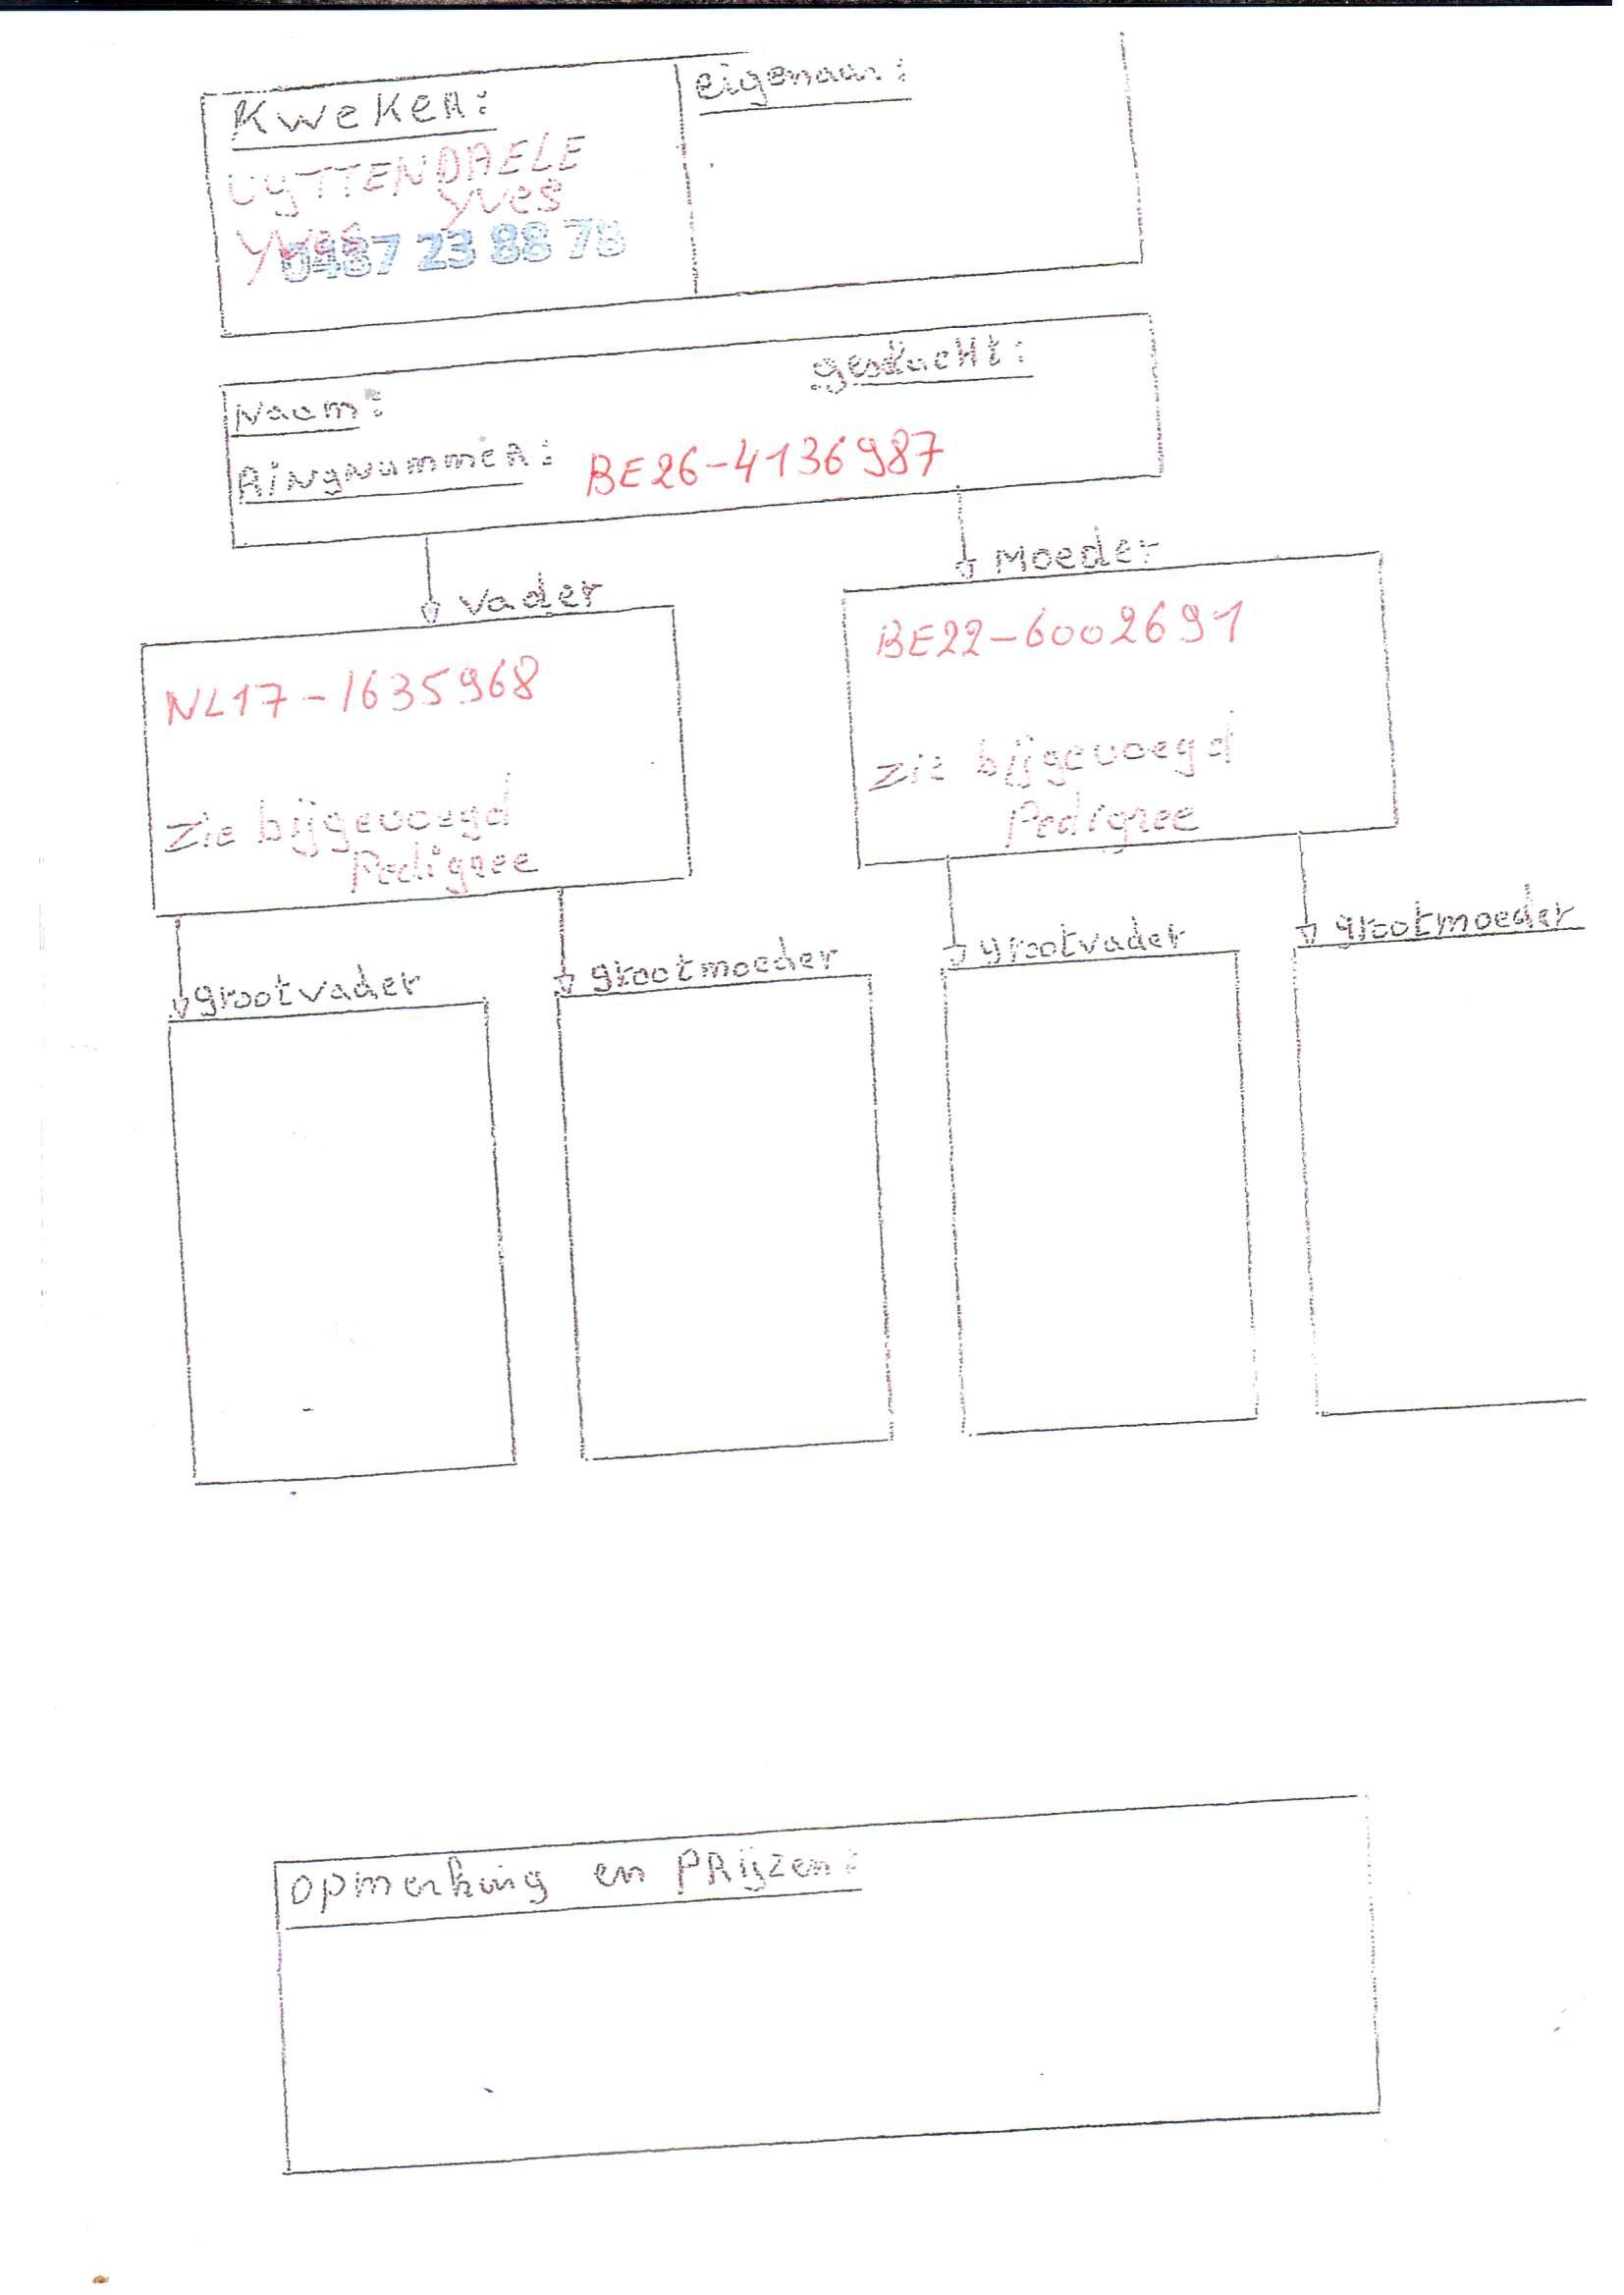 Kweker:
eigenaar:
UYTTENDAELE
Yves
Yves
0487 23 88 78
Naam:
geslacht:
Ringnummer: BE26-4136987
vader
Moeder
NL17-1635968
zie bijgevoegd
Pedigree
BE22-6002691
zie bijgevoegd
Pedigree
grootvader
grootmoeder
grootvader
grootmoeder
opmerking en PRijzen: